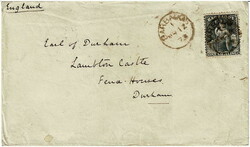 England
Earl of Durham
Lambton Castle
Fence-Houses
Durham